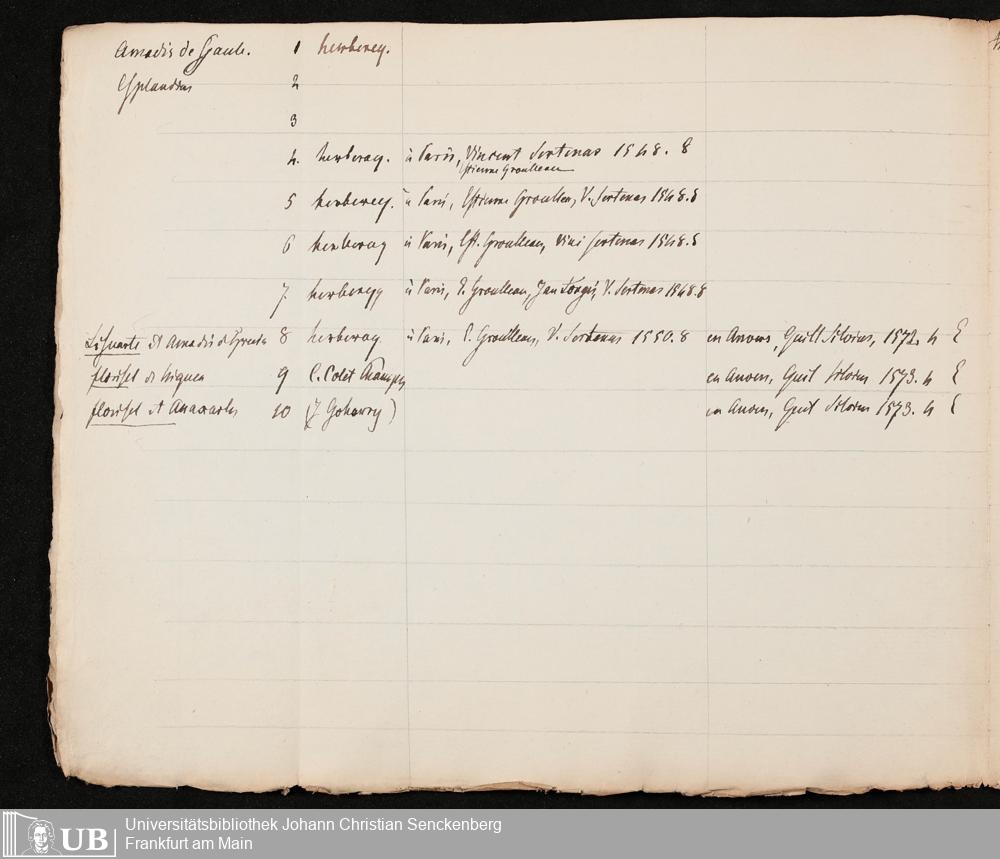 Amadis de Gaule. 1 herberey.
Esplandian 2
3
4. herberay. à Paris, Vincent Sertenas 1548. 8
Estienne Groulleau
5 herberey. à Paris, Estienne Groulleau, V. Sertenas 1548. 8
6 herberay à Paris, Est. Groulleau, Vinc Sertenas 1548. 8
7. herberay à Paris, E. Groulleau, Jan Longis, V. Sertenas 1548. 8
Lisuarte et Amadis de Grece 8 herberay. à Paris, E. Groulleau, V. Sertenas 1550. 8 en Anvers, Guill Silvius, 1572. 4 E
florisel de Niquea 9 C. Colet Champ. en Anvers, Guil Silvius 1573. 4 E
florisel et Anaxarte 10 (J. Gohorry) en Anvers, Guil Silvius 1573. 4 E
UB
Universitätsbibliothek Johann Christian Senckenberg
Frankfurt am Main